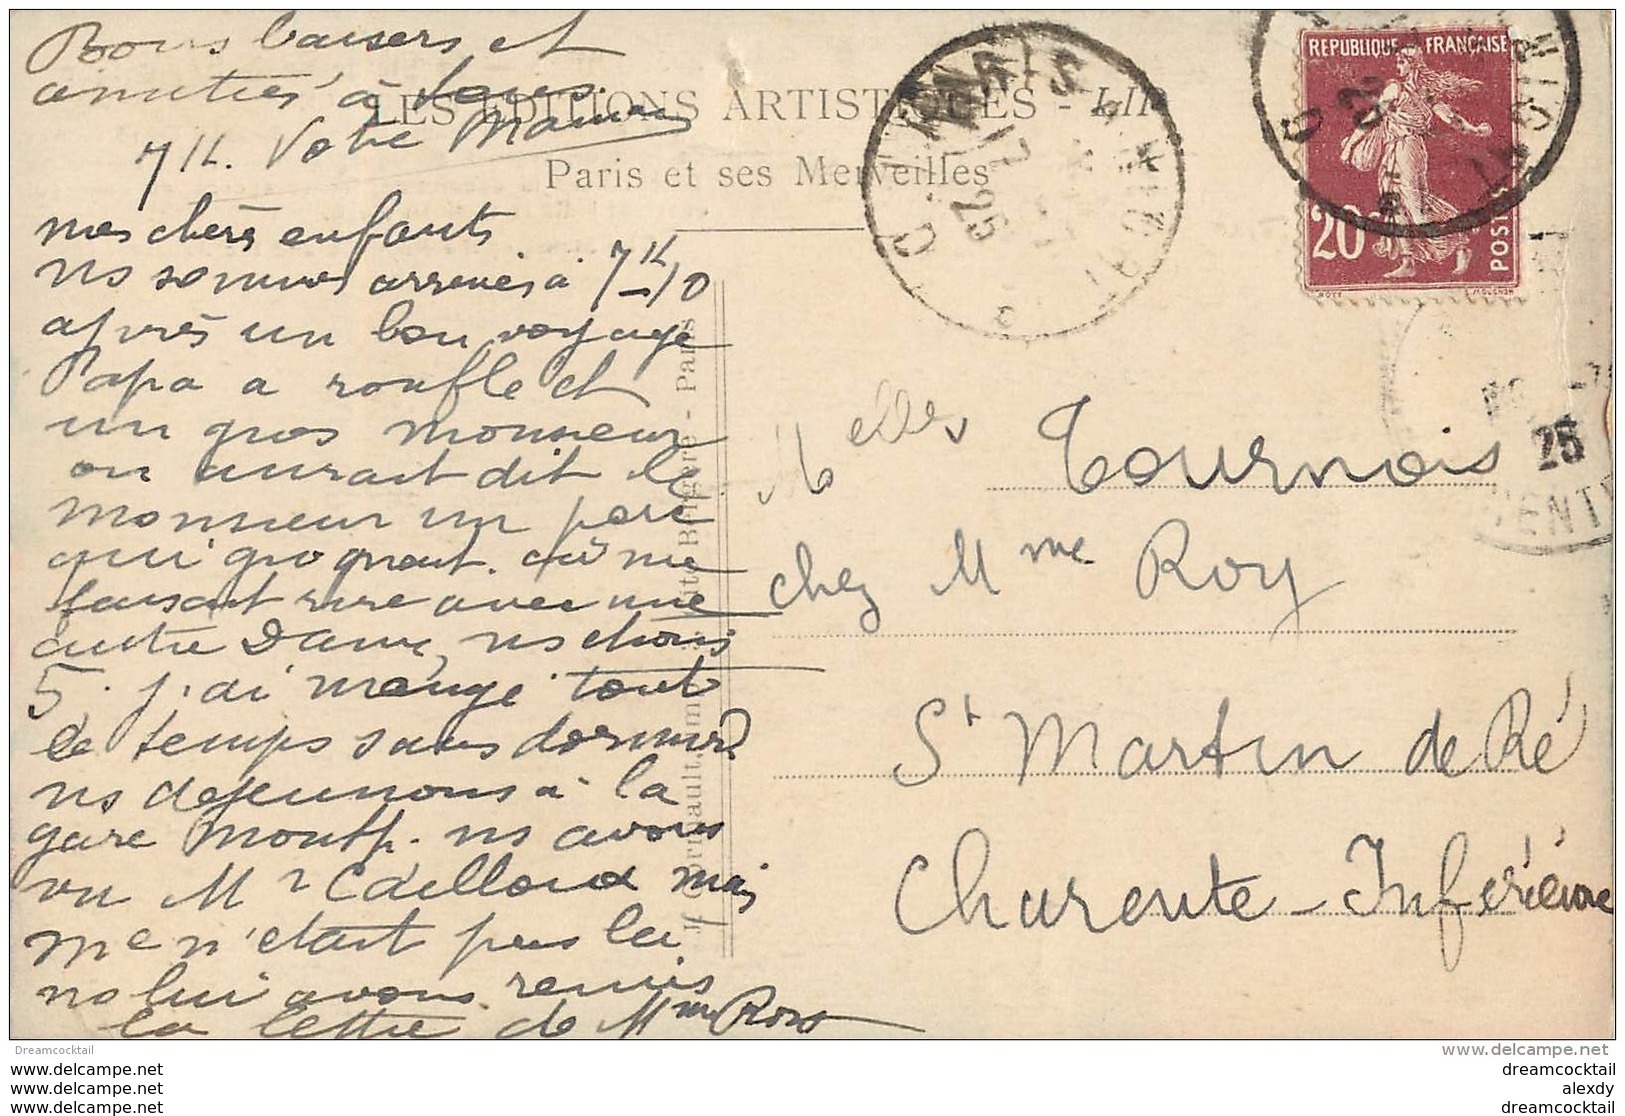 Bons baisers et
amitiés à tous.
7 H. Votre Maman
LES EDITIONS ARTISTIQUES - L
Paris et ses Merveilles
mes chères enfants
ns sommes arrivés à 7H 10
après un bon voyage
Papa a ronflé et
un gros monsieur
on aurait dit le
monsieur un porc
qui grognait. ça me
faisait rire avec une
autre Dame, ns étions
5. j'ai mangé tout
le temps sans dormir
ns dejeunons à la
gare Montp. ns avons
vu Mr Caillaud mais
Me n'etait pas là
ns lui avons remis
la lettre de Mme Ross
Melles Tournois
chez Mme Roy
St Martin de Ré
Charente-Inférieure
REPUBLIQUE FRANÇAISE
20c
POSTES
PARIS
25
25
Dreamcocktail
www.delcampe.net
www.delcampe.net
dreamcocktail
www.delcampe.net
alexdy
www.delcampe.net
dreamcocktail